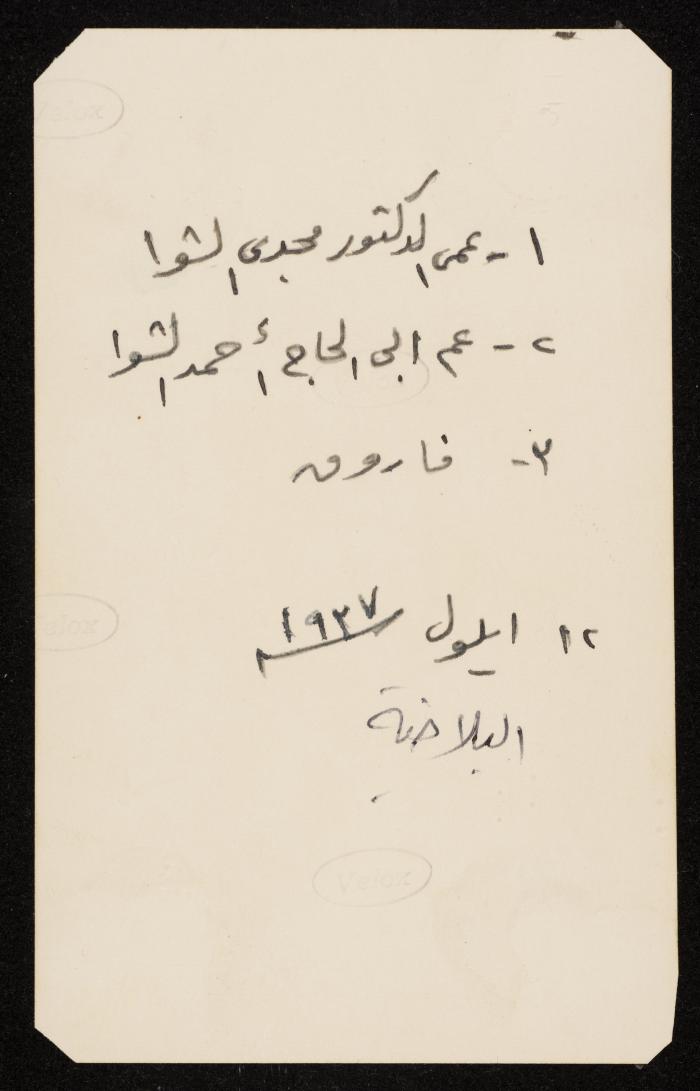 Velox
١ - عمي الدكتور مجدي الشوا
٢ - عم ابي الحاج أحمد الشوا
٣ - فاروق
١٢ ايلول ١٩٣٧
Velox
Velox